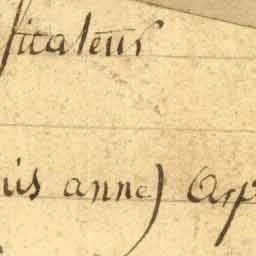 ficateur
uis anne) Arp